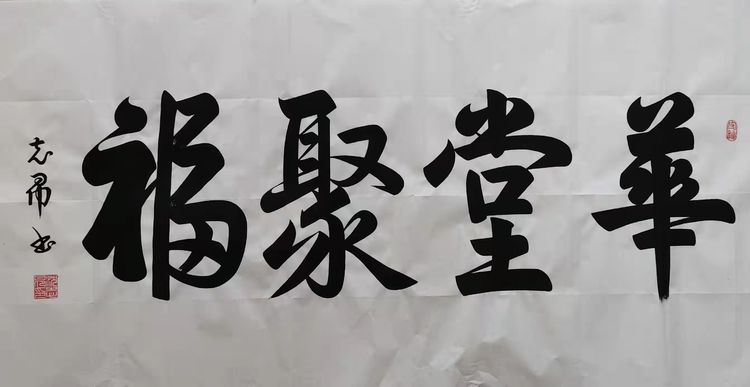 華堂聚福
志帚书